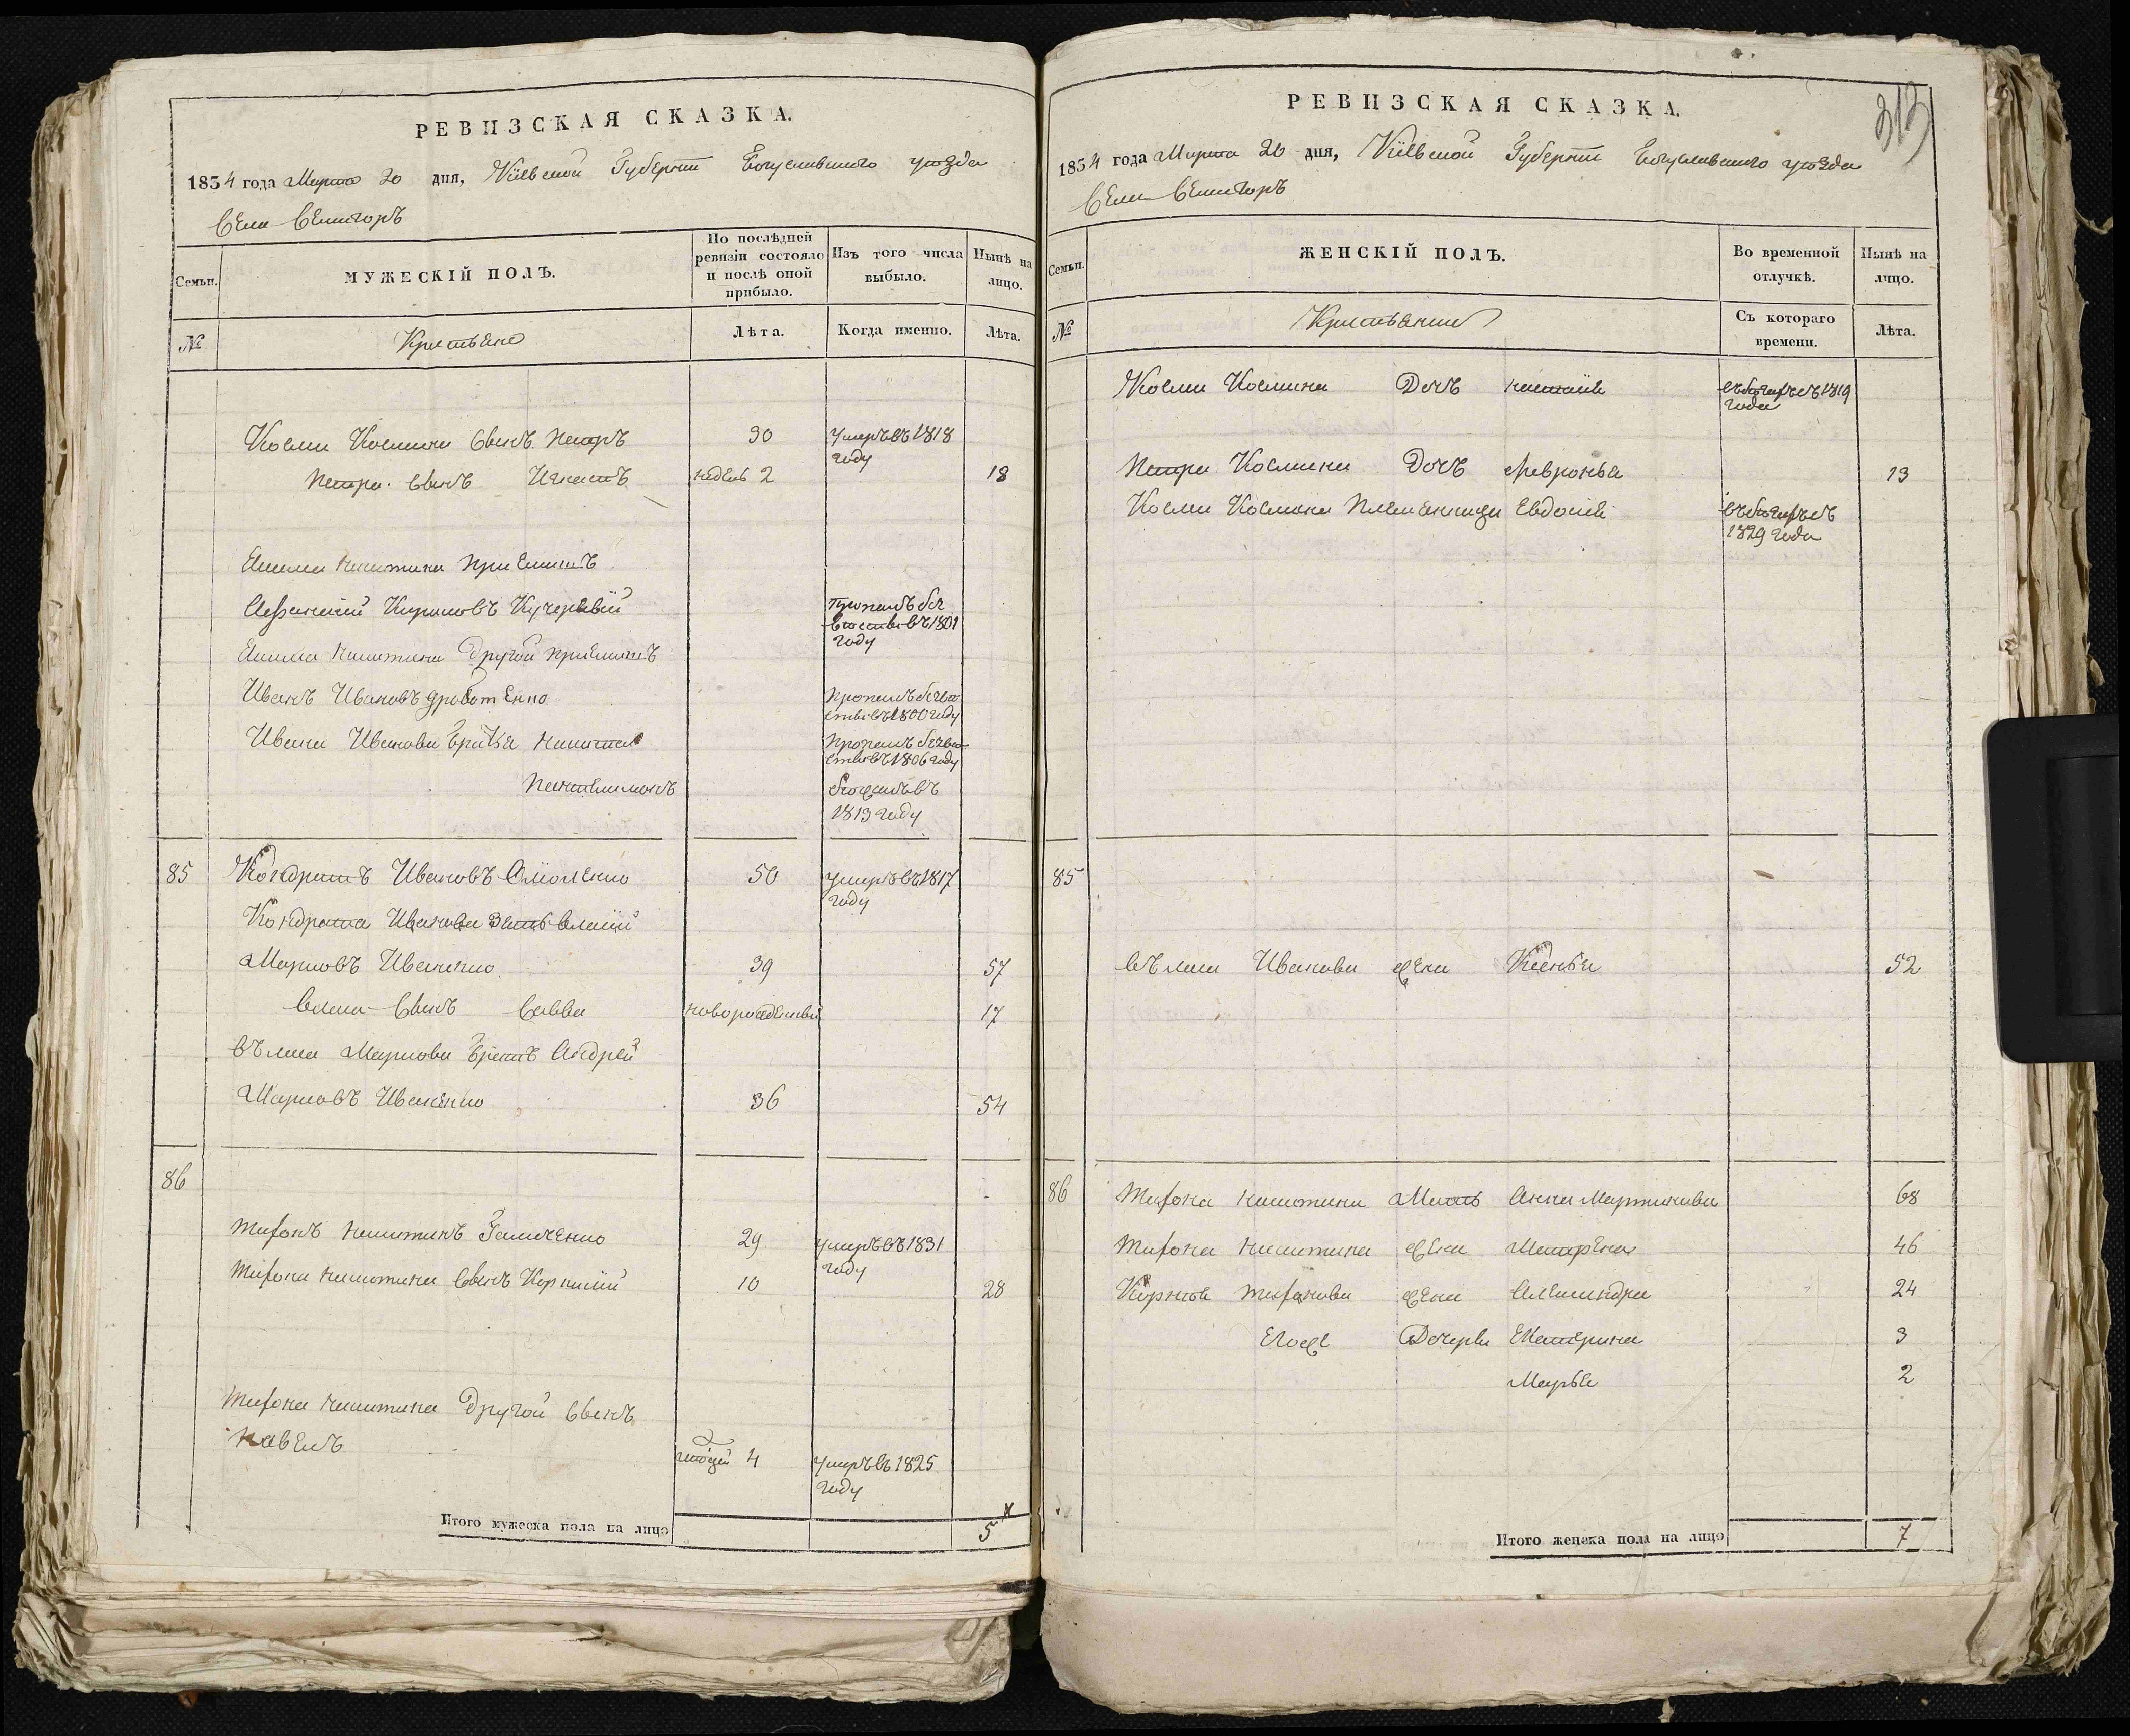 РЕВИЗСКАЯ СКАЗКА.
1834 года Марта 20 дня, Кіевской Губерніи Богуславского уѣзда
Села Семигоръ
Семьи.
МУЖЕСКІЙ ПОЛЪ.
По послѣдней ревизіи состояло и послѣ оной прибыло.
Изъ того числа выбыло.
Нынѣ на лицо.
№
Крестьяне
Лѣта.
Когда именно.
Лѣта.
Космы Космина Сынъ Петръ 30 умеръ въ 1818
году
Петра Сынъ Игнатъ недель 2 18
Якима Никитина приемышъ
Афанасий Кириловъ Кучерявый пропалъ без
вѣсти въ 1801
году
Якима Никитина другой приемышъ
Иванъ Ивановъ Дроботенко пропалъ безвѣ
сти въ 1800 году
Ивана Иванова братья Никита пропалъ безвѣ
сти въ 1806 году
Пантелимонъ бежалъ въ
1813 году
85 Кондратъ Ивановъ Смоленко 50 умеръ въ 1817
году
Кондрата Иванова зять Василий
Марковъ Иваненко 39 57
Сынъ Савва новорожденный 17
Маркова братъ Андрей
Марковъ Иваненко 36 54
86
Тифонъ Никитинъ 29 умеръ въ 1831
году
Тифона Никитина Сынъ Корнилий 10 28
Тифона Никитина другой Сынъ
Павелъ 4 умеръ въ 1825
году
Итого мужеска пола на лицо 5
313
РЕВИЗСКАЯ СКАЗКА.
1834 года Марта 20 дня, Кіевской Губерніи Богуславского уѣзда
Села Семигоръ
Семьи.
ЖЕНСКІЙ ПОЛЪ.
Во временной отлучкѣ.
Нынѣ на лицо.
№
Крестьянки
Съ котораго времени.
Лѣта.
Космы Космина Дочь 1819
года
Петра Космина Дочь Февронья 13
Космы Космина племянница Евдокия
1829 года
85
Иванова жена Ксенья 52
86 Тифона Никитина Мать Анна Мартинова 68
Тифона Никитина жена Матрена 46
Тифонова жена Александра 24
Егоже Дочери Екатерина 3
Марья 2
Итого женска пола на лицо 7